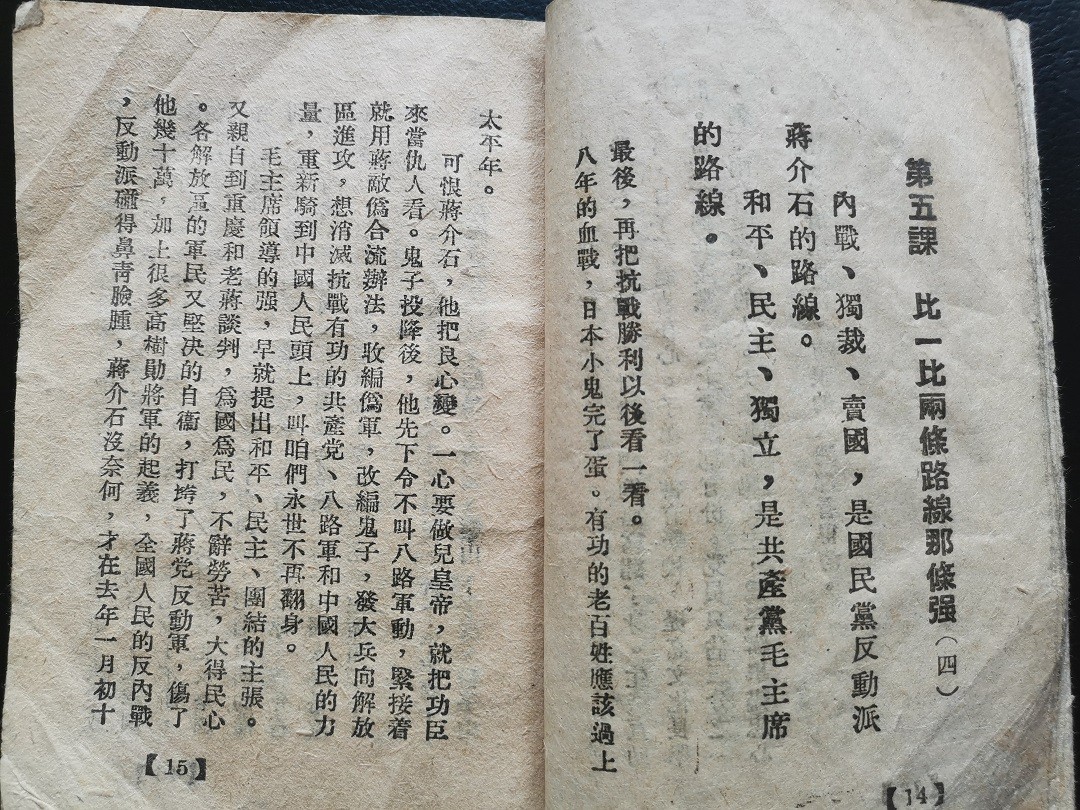 第五課　比一比兩條路線那條强(四)
內戰、獨裁、賣國，是國民黨反動派
蔣介石的路線。
和平、民主、獨立，是共產黨毛主席
的路線。
最後，再把抗戰勝利以後看一看。
八年的血戰，日本小鬼完了蛋。有功的老百姓應該過上
【14】
太平年。
可恨蔣介石，他把良心變。一心要做兒皇帝，就把功臣
來當仇人看。鬼子投降後，他先下令不叫八路軍動，緊接着
就用蔣敵僞合流辦法，收編僞軍，改編鬼子，發大兵向解放
區進攻，想消滅抗戰有功的共產党、八路軍和中國人民的力
量，重新騎到中國人民頭上，叫咱們永世不再翻身。
毛主席領導的强，早就提出和平、民主、團結的主張。
又親自到重慶和老蔣談判，爲國爲民，不辭勞苦，大得民心
。各解放區的軍民又堅决的自衛，打垮了蔣党反動軍，傷了
他幾十萬，加上很多高樹勛將軍的起義，全國人民的反內戰
，反動派碰得鼻靑臉腫，蔣介石沒奈何，才在去年一月初十
【15】